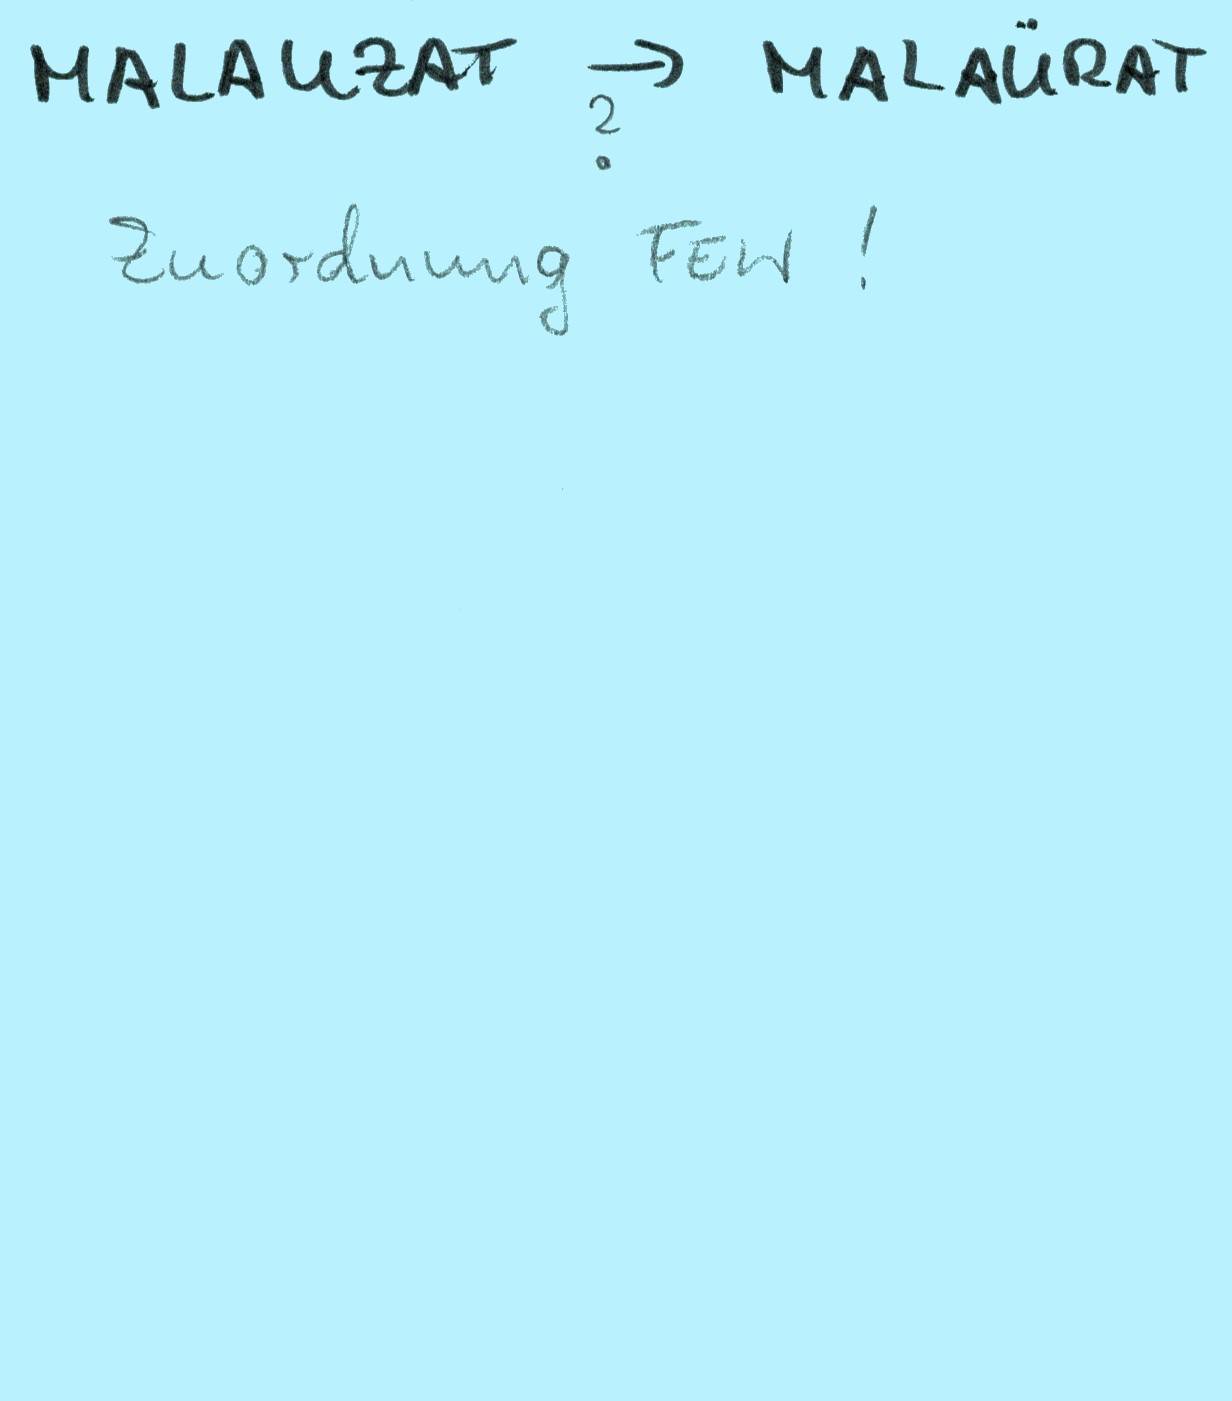 MALAUZAT → MALAÜRAT
?
Zuordnung FEW !